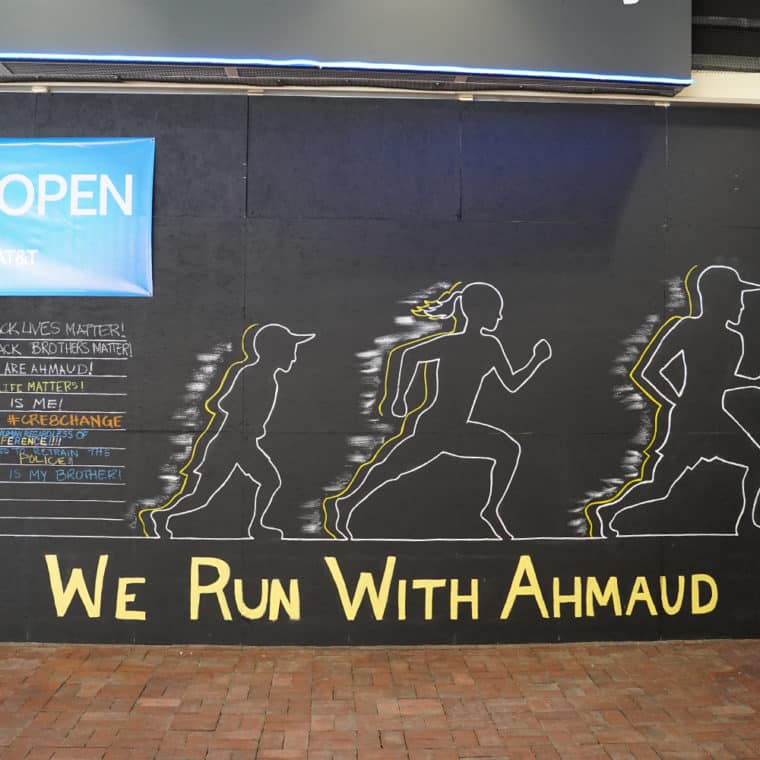 OPEN
AT&T
LIVES MATTER!
BROTHERS MATTER!
ARE AHMAUD!
LIFE MATTERS!
IS ME!
#CRE8CHANGE
REGARDLESS OF
FERENCE!!!!
TO RETRAIN THE
POLICE!!
IS MY BROTHER!
WE RUN WITH AHMAUD